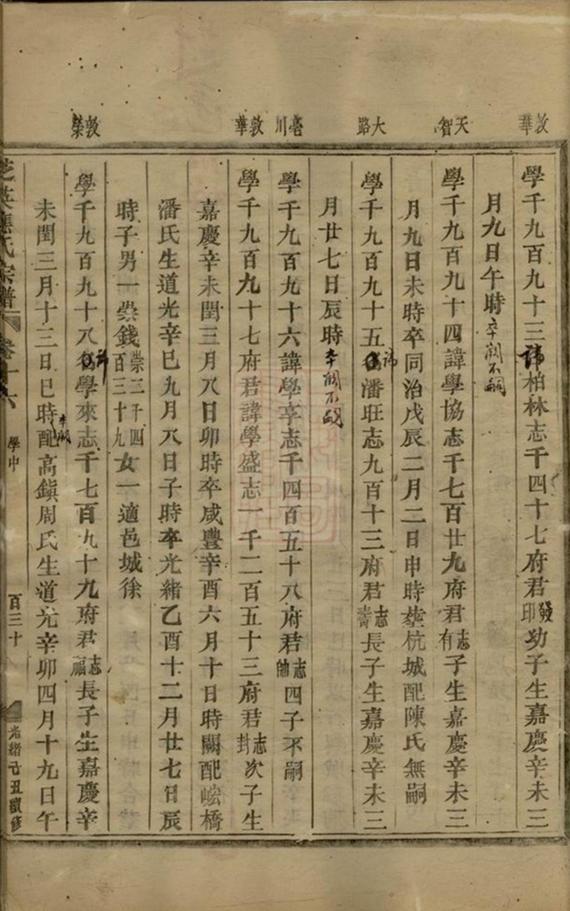 敦華
天智
大路
亳川
敦華
敦榮
學千九百九十三諱柏林志千四十七府君發印功子生嘉慶辛未三
月九日午時卒闕不嗣
學千九百九十四諱學協志千七百廿九府君志有子生嘉慶辛未三
月九日未時卒同治戊辰二月二日申時塟杭城配陳氏無嗣
學千九百九十五諱潘旺志九百十三府君志長子生嘉慶辛未三
月廿七日辰時卒闕不嗣
學千九百九十六諱學亭志千四百五十八府君志四子不嗣
學千九百九十七府君諱學盛志一千二百五十三府君志封次子生
嘉慶辛未閏三月八日卯時卒咸豐辛酉六月十日時闕配峼橋
潘氏生道光辛巳九月六日子時卒光緒乙酉十二月廿七日辰
時子男一崇錢崇二千四百三十九女一適邑城徐
學千九百九十八諱學來志千七百九十九府君志福長子生嘉慶辛
未閏三月十三日巳時卒闕配高鎮周氏生道光辛卯四月十九日午
芝英應氏宗譜
卷十六
學中
百三十
光緒己丑續修